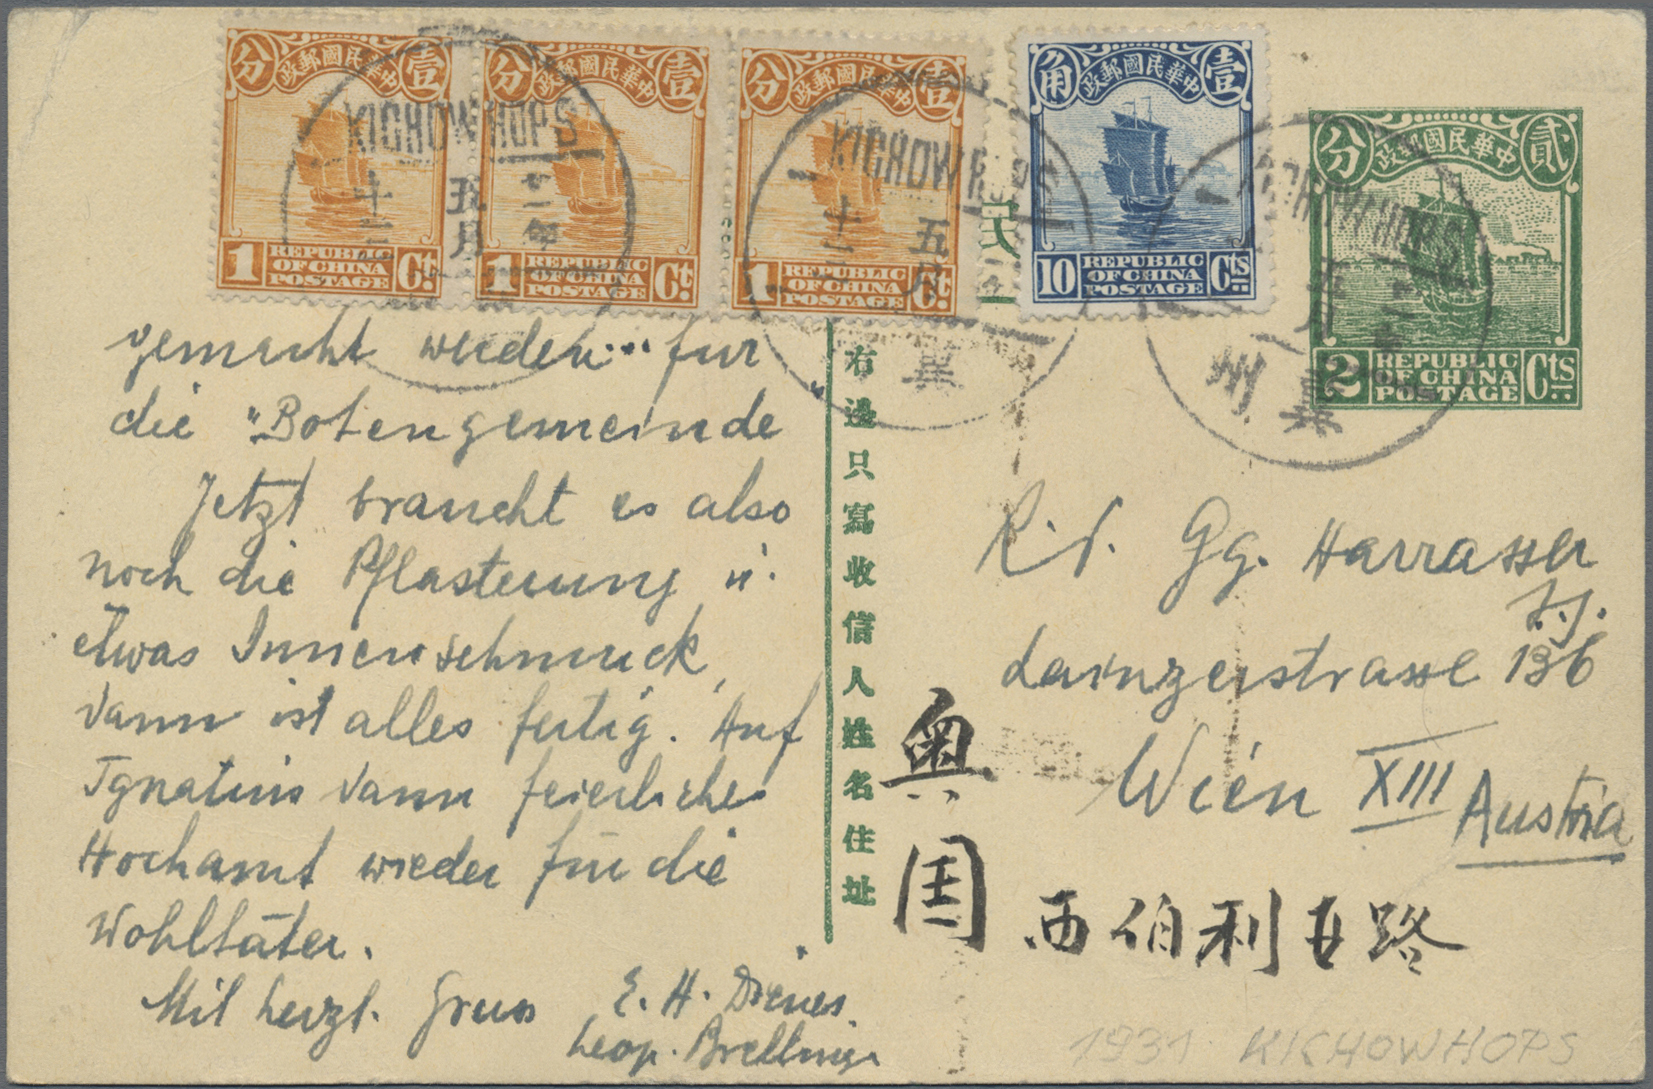 中華民國郵政
壹 分
1 REPUBLIC OF CHINA POSTAGE Ct.
中華民國郵政
壹 分
1 REPUBLIC OF CHINA POSTAGE Ct.
中華民國郵政
壹 分
1 REPUBLIC OF CHINA POSTAGE Ct.
中華民國郵政
壹 角
10 REPUBLIC OF CHINA POSTAGE Cts
中華民國郵政
貳 分
2 REPUBLIC OF CHINA POSTAGE Cts
KICHOWHOPS
五月
KICHOWHOPS
五月
冀
KICHOWHOPS
冀州
右邊只寫收信人姓名住址
gemacht werden für
die "Botengemeinde
Jetzt braucht es also
noch die Pflasterung u.
etwas Innenschmuck,
dann ist alles fertig. Auf
Ignatius dann feierliches
Hochamt wieder für die
Wohltäter.
Mit herzl. Gruss E. H.
Leop. Brellinger
R. P. Gg. Harrasser
S.J.
Lainzerstrasse 136
Wien XIII
Austria
奥国
西伯利亞路
1931 KICHOWHOPS